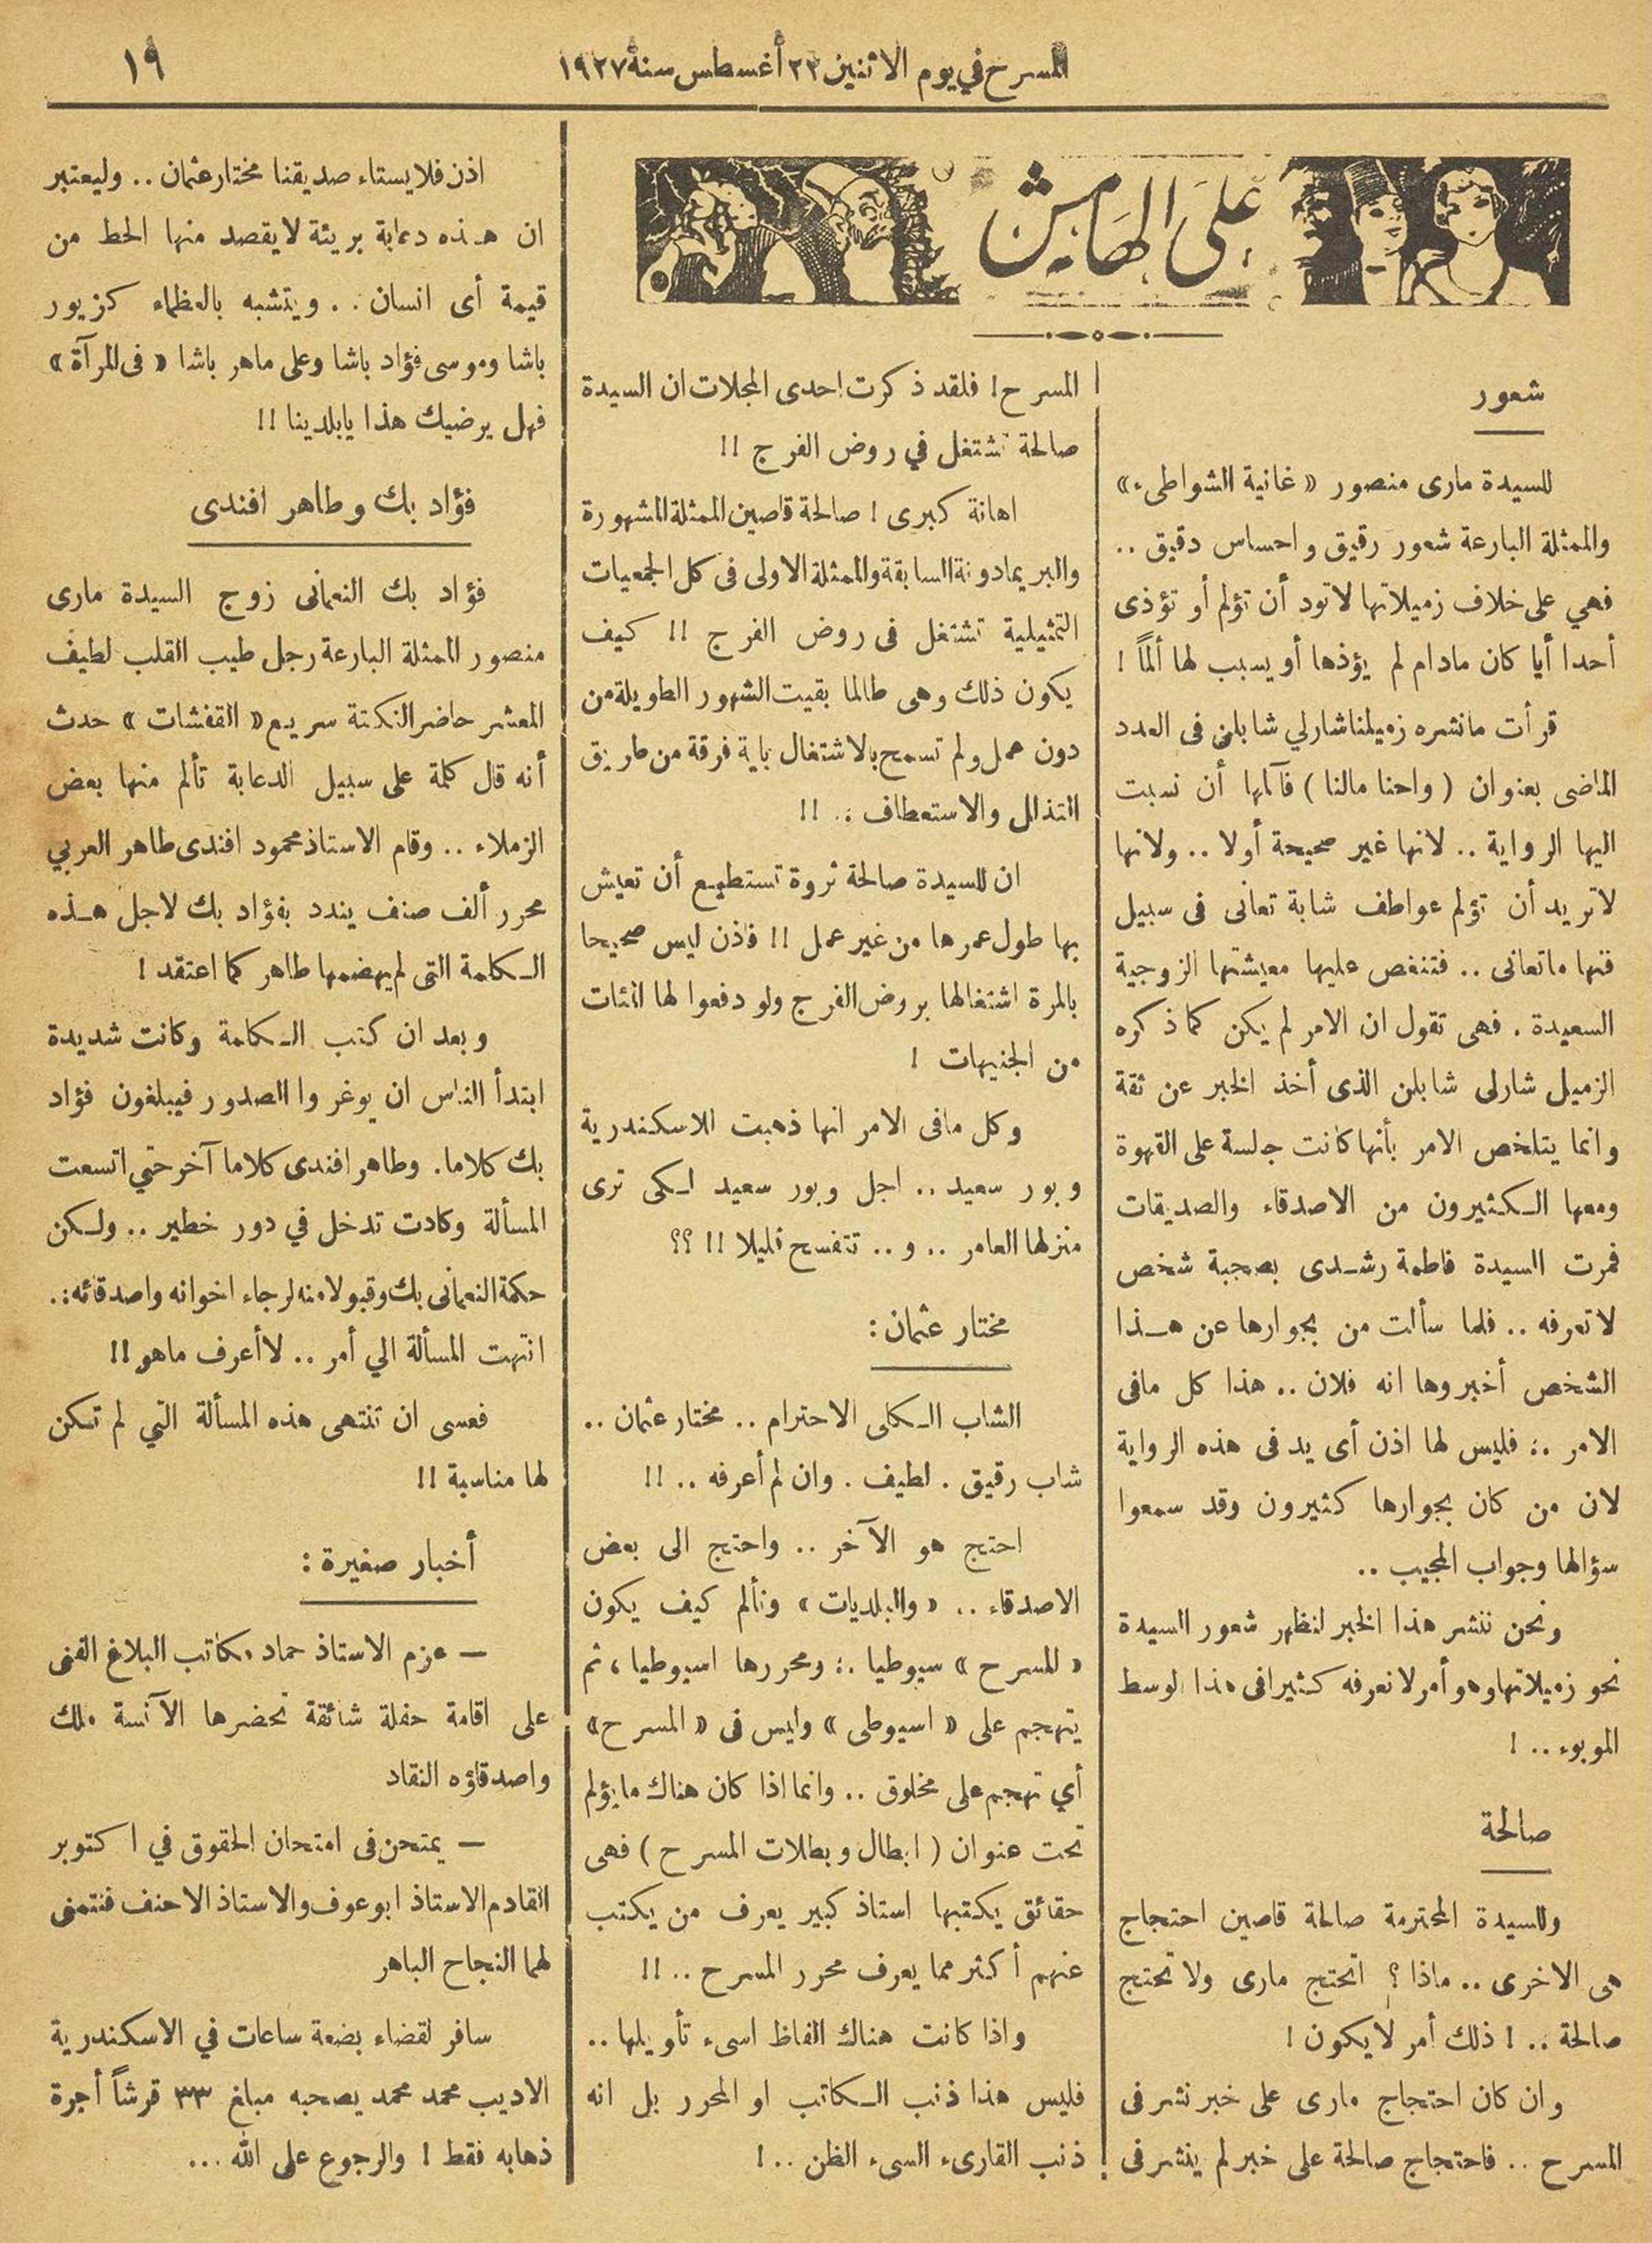 المسرح في يوم الاثنين ٢٢ أغسطس سنة ١٩٢٧
١٩
على الهامش
شعور
للسيدة مارى منصور « غانية الشواطىء»
والممثلة البارعة شعور رقيق واحساس دقيق ..
فهي على خلاف زميلاتها لا تود أن تؤلم أو تؤذى
أحدا أيا كان مادام لم يؤذها أو يسبب لها ألماً !
قرأت مانشره زميلنا شارلي شابلن فى العدد
الماضى بعنوان ( واحنا مالنا ) فآلمها أن نسبت
اليها الرواية .. لانها غير صحيحة أولا .. ولانها
لا تريد أن تؤلم عواطف شابة تعانى فى سبيل
فنها ماتعانى .. فتنغص عليها معيشتها الزوجية
السعيدة . فهى تقول ان الامر لم يكن كما ذكره
الزميل شارلى شابلن الذى أخذ الخبر عن ثقة
وانما يتلخص الامر بأنها كانت جالسة على القهوة
ومعها الكثيرون من الاصدقاء والصديقات
فمرت السيدة فاطمة رشدى بصحبة شخص
لا تعرفه .. فلما سألت من بجوارها عن هذا
الشخص أخبروها انه فلان .. هذا كل مافى
الامر .. فليس لها اذن أى يد فى هذه الرواية
لان من كان بجوارها كثيرون وقد سمعوا
سؤالها وجواب المجيب ..
ونحن ننشر هذا الخبر لنظهر شعور السيدة
نحو زميلاتها وهو أمر لا نعرفه كثيرا فى هذا الوسط
الموبوء .. !
صالحة
وللسيدة المحترمة صالحة قاصين احتجاج
هى الاخرى .. ماذا ؟ اتحتج مارى ولا تحتج
صالحة .. ! ذلك أمر لا يكون !
وان كان احتجاج مارى على خبر نشر فى
المسرح .. فاحتجاج صالحة على خبر لم ينشر فى
المسرح ! فلقد ذكرت احدى المجلات ان السيدة
صالحة تشتغل في روض الفرج !!
اهانة كبرى ! صالحة قاصين الممثلة المشهورة
والبريمادونة السابقة والممثلة الاولى فى كل الجمعيات
التمثيلية تشتغل فى روض الفرج !! كيف
يكون ذلك وهى طالما بقيت الشهور الطويلة من
دون عمل ولم تسمح بالاشتغال باية فرقة من طريق
التذلل والاستعطاف .. !!
ان للسيدة صالحة ثروة تستطيع أن تعيش
بها طول عمرها من غير عمل !! فاذن ليس صحيحا
بالمرة اشتغالها بروض الفرج ولو دفعوا لها المئات
من الجنيهات !
وكل مافى الامر انها ذهبت للاسكندرية
وبور سعيد .. اجل وبور سعيد لكى ترى
منزلها العامر .. و .. تتفسح قليلا !! ؟؟
مختار عثمان :
الشاب الكلى الاحترام .. مختار عثمان ..
شاب رقيق . لطيف . وان لم أعرفه .. !!
احتج هو الآخر .. واحتج الى بعض
الاصدقاء .. « والبلديات » وتألم كيف يكون
« المسرح » سيوطيا .. ومحررها اسيوطيا ، ثم
يتهجم على « اسيوطى » وليس فى « المسرح»
أي تهجم على مخلوق .. وانما اذا كان هناك ما يؤلم
تحت عنوان ( ابطال وبطلات المسرح ) فهى
حقائق يكتبها استاذ كبير يعرف من يكتب
عنهم أكثر مما يعرف محرر المسرح .. !!
واذا كانت هناك الفاظ اسىء تأويلها ..
فليس هذا ذنب الكاتب او المحرر بل انه
ذنب القارىء السىء الظن .. !
اذن فلا يستاء صديقنا مختار عثمان .. وليعتبر
ان هذه دعابة بريئة لا يقصد منها الحط من
قيمة أى انسان .. ويتشبه بالعظماء كزيور
باشا وموسى فؤاد باشا وعلى ماهر باشا « فى المرآة »
فهل يرضيك هذا يابلدينا !!
فؤاد بك وطاهر افندى
فؤاد بك النعمانى زوج السيدة مارى
منصور الممثلة البارعة رجل طيب القلب لطيف
المعشر حاضر النكتة سريع « القفشات » حدث
أنه قال كلمة على سبيل الدعابة تألم منها بعض
الزملاء .. وقام الاستاذ محمود افندى طاهر العربي
محرر ألف صنف يندد بفؤاد بك لاجل هذه
الكلمة التى لم يهضمها طاهر كما اعتقد !
وبعد ان كتب الكلمة وكانت شديدة
ابتدأ الناس ان يوغروا الصدور فيبلغون فؤاد
بك كلاما . وطاهر افندى كلاما آخر حتي اتسعت
المسألة وكادت تدخل في دور خطير .. ولكن
حكمة النعمانى بك وقبولا منه لرجاء اخوانه واصدقائه ..
انتهت المسألة الي أمر .. لا أعرف ماهو !!
فعسى ان تنتهى هذه المسألة التي لم تكن
لها مناسبة !!
أخبار صغيرة :
— عزم الاستاذ حماد مكاتب البلاغ الفنى
على اقامة حفلة شائقة تحضرها الآنسة ملك
واصدقاؤه النقاد
— يمتحن فى امتحان الحقوق في اكتوبر
القادم الاستاذ ابو عوف والاستاذ الاحنف فنتمنى
لهما النجاح الباهر
سافر لقضاء بضعة ساعات في الاسكندرية
الاديب محمد محمد يصحبه مبلغ ٣٣ قرشاً أجرة
ذهابه فقط ! والرجوع على الله ...